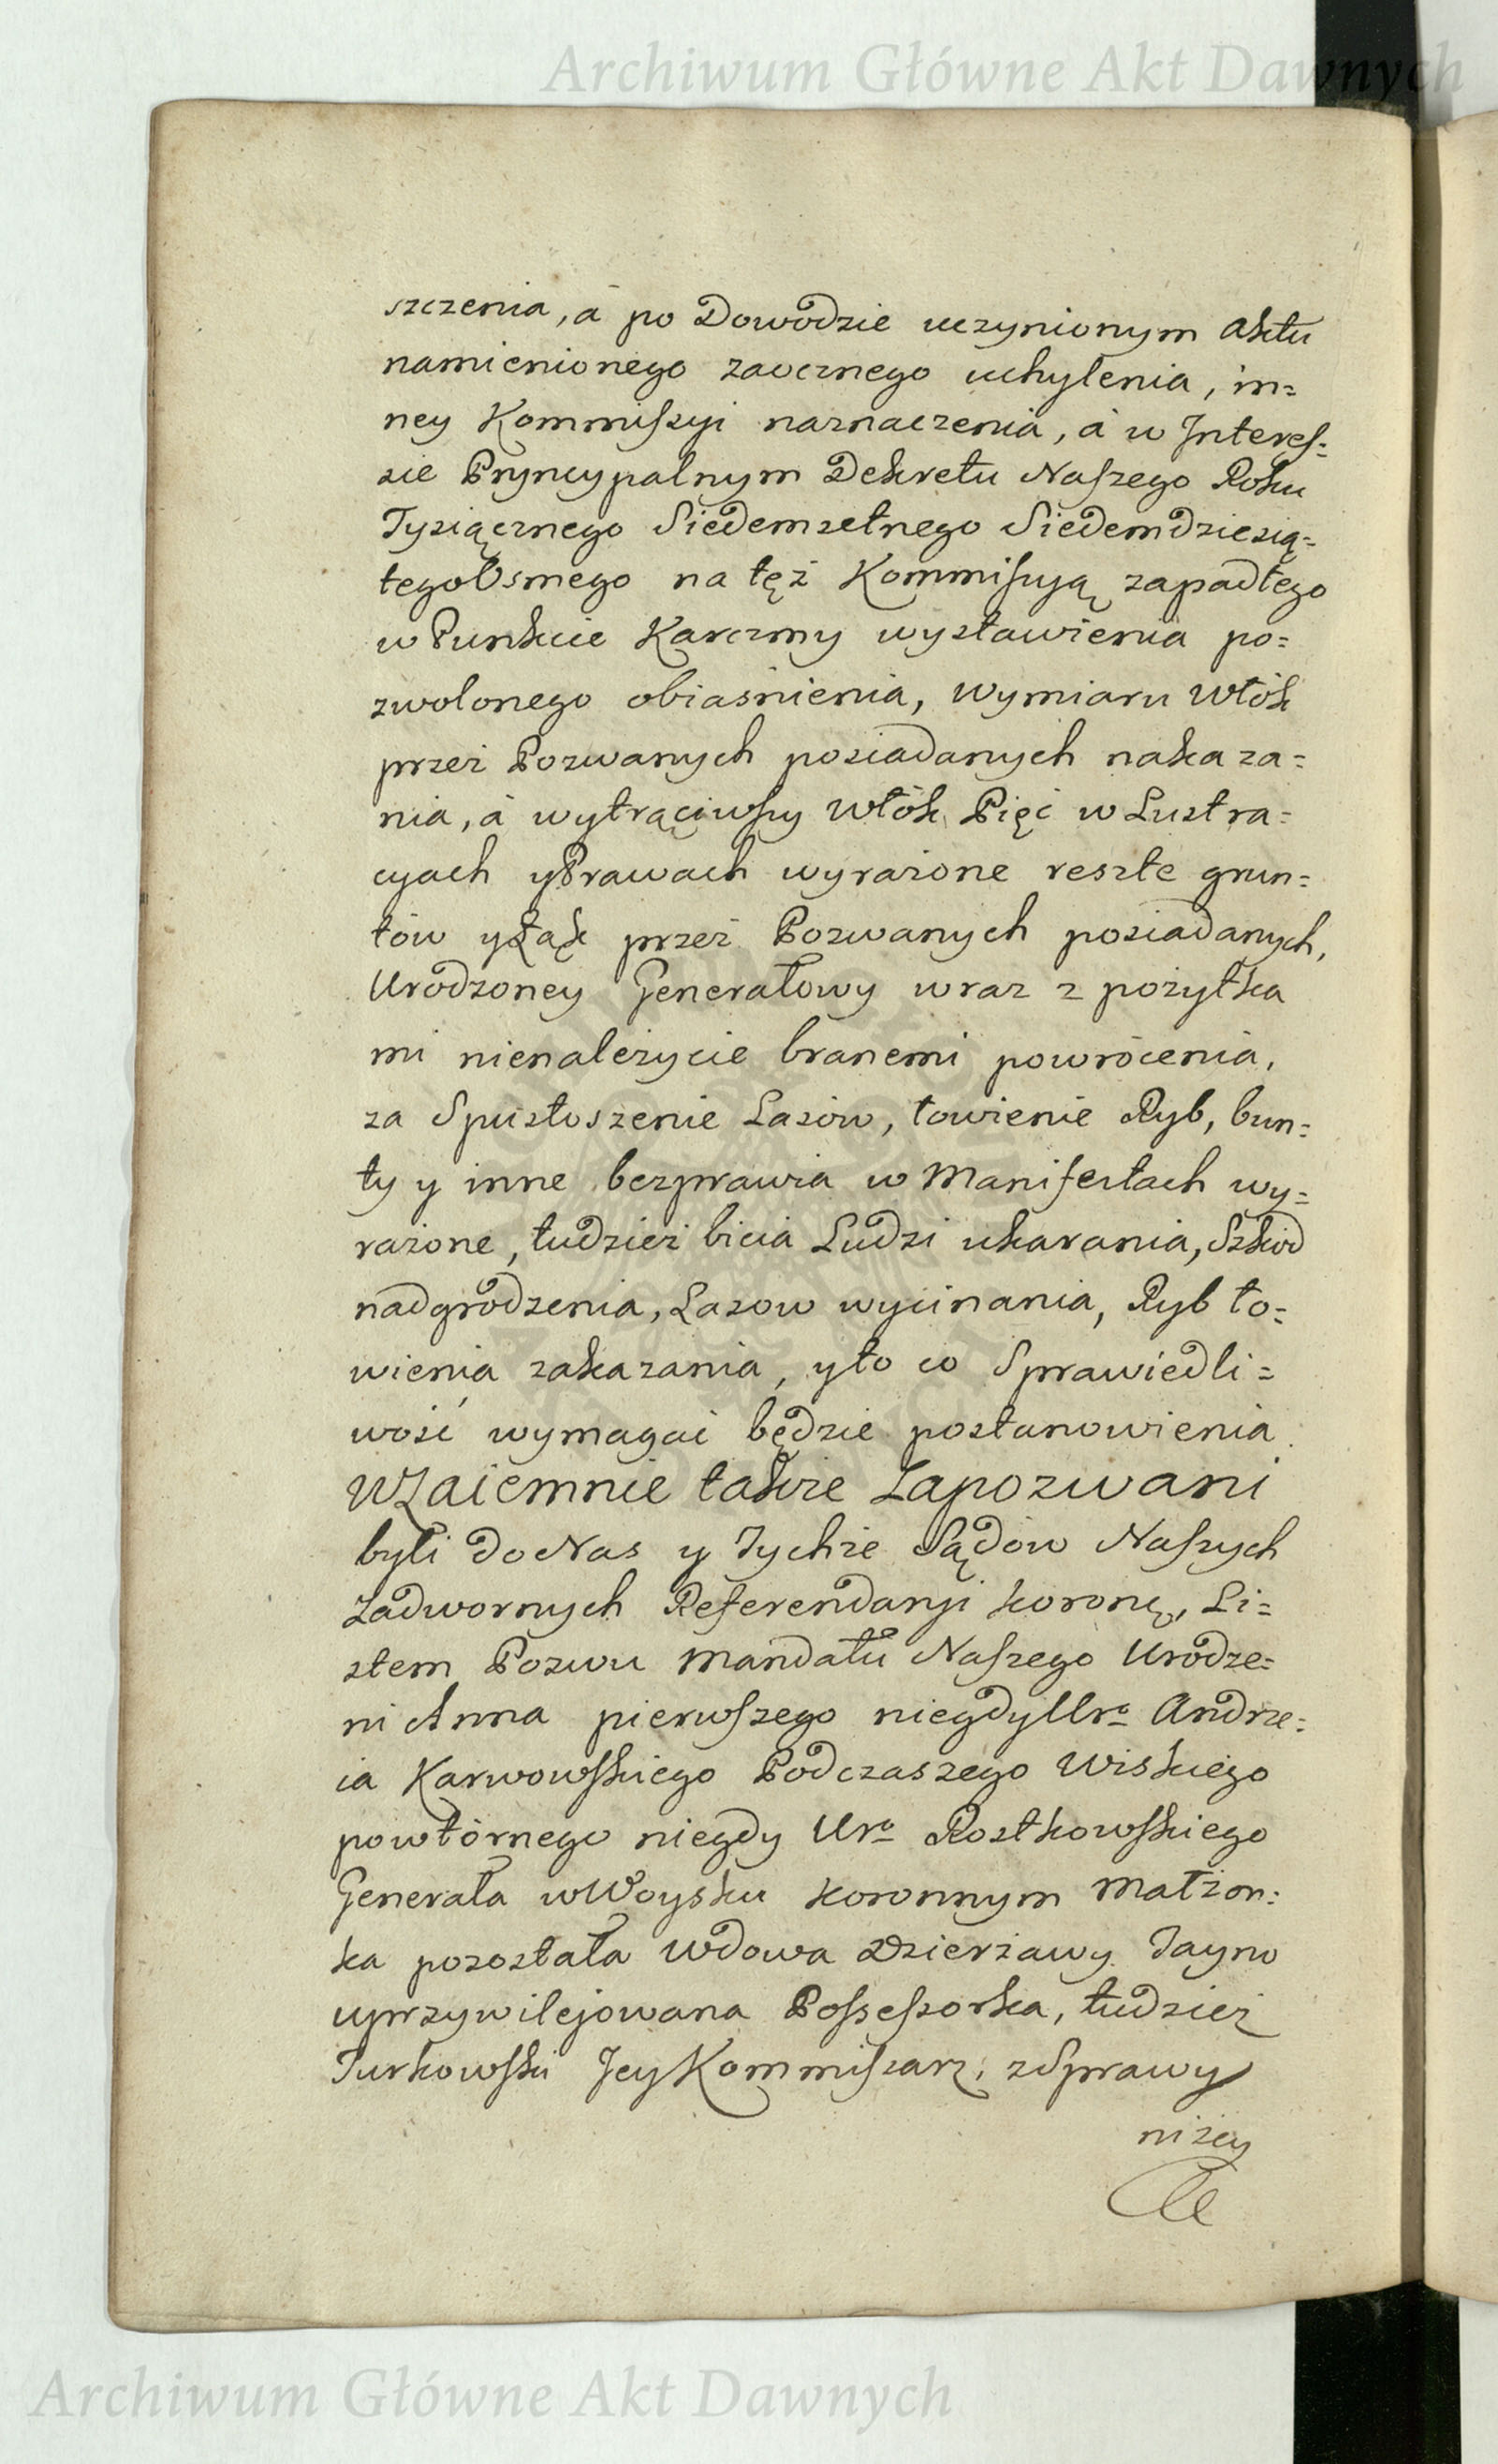 Archiwum Główne Akt Dawnych
szczenia, á po Dowodzie uczynionym aktu
namienionego zaocznego uchylenia, in=
ney Kommiſzyi naznaczenia, á w Intereſ=
sie Pryncypalnym Dekretu Naſzego Roku
Tysiącznego Siedemsetnego Siedemdziesią=
tego Osmego na tęż Kommiſsyią zapadłego
w Punkcie Karczmy wystawienia po=
zwolonego obiaśnienia, wymiaru Włók
przez Pozwanych posiadanych nakaza=
nia, á wytrąciwſzy Włók Pięć w Lustra=
cyach y Prawach wyrażone reszte grun=
tów y Łąk przez Pozwanych posiadanych,
Urodzoney Generałowy wraz z pożytka
mi nienależycie branemi powrócenia,
za Spustoszenie Lasów, łowienie Ryb, bun=
ty y inne bezprawia w Manifestach wy=
rażone, tudzież bicia Ludzi ukarania, Szkód
nadgrodzenia, Lasow wycinania, Ryb ło=
wienia zakazania, y to co Sprawiedli=
wość wymagać będzie postanowienia.
Wzaiemnie także Zapozwani
byli do Nas y Tychże Sądów Naſzych
Zadwornych Referendaryi koronę, Li=
stem Pozwu Mandatu Naſzego Urodze=
ni Anna pierwſzego niegdy Urº Andrze=
ia Karwowſkiego Podczaszego Wiskiego
powtórnego niegdy Urº Rostkowſkiego
Generała w Woysku koronnym Małżon=
ka pozostała Wdowa Dzierżawy Jayno
uprzywilejowana Poſseſsorka, tudzież
Turkowſki Jey Kommiſsarz, z Sprawy
niżey
Archiwum Główne Akt Dawnych